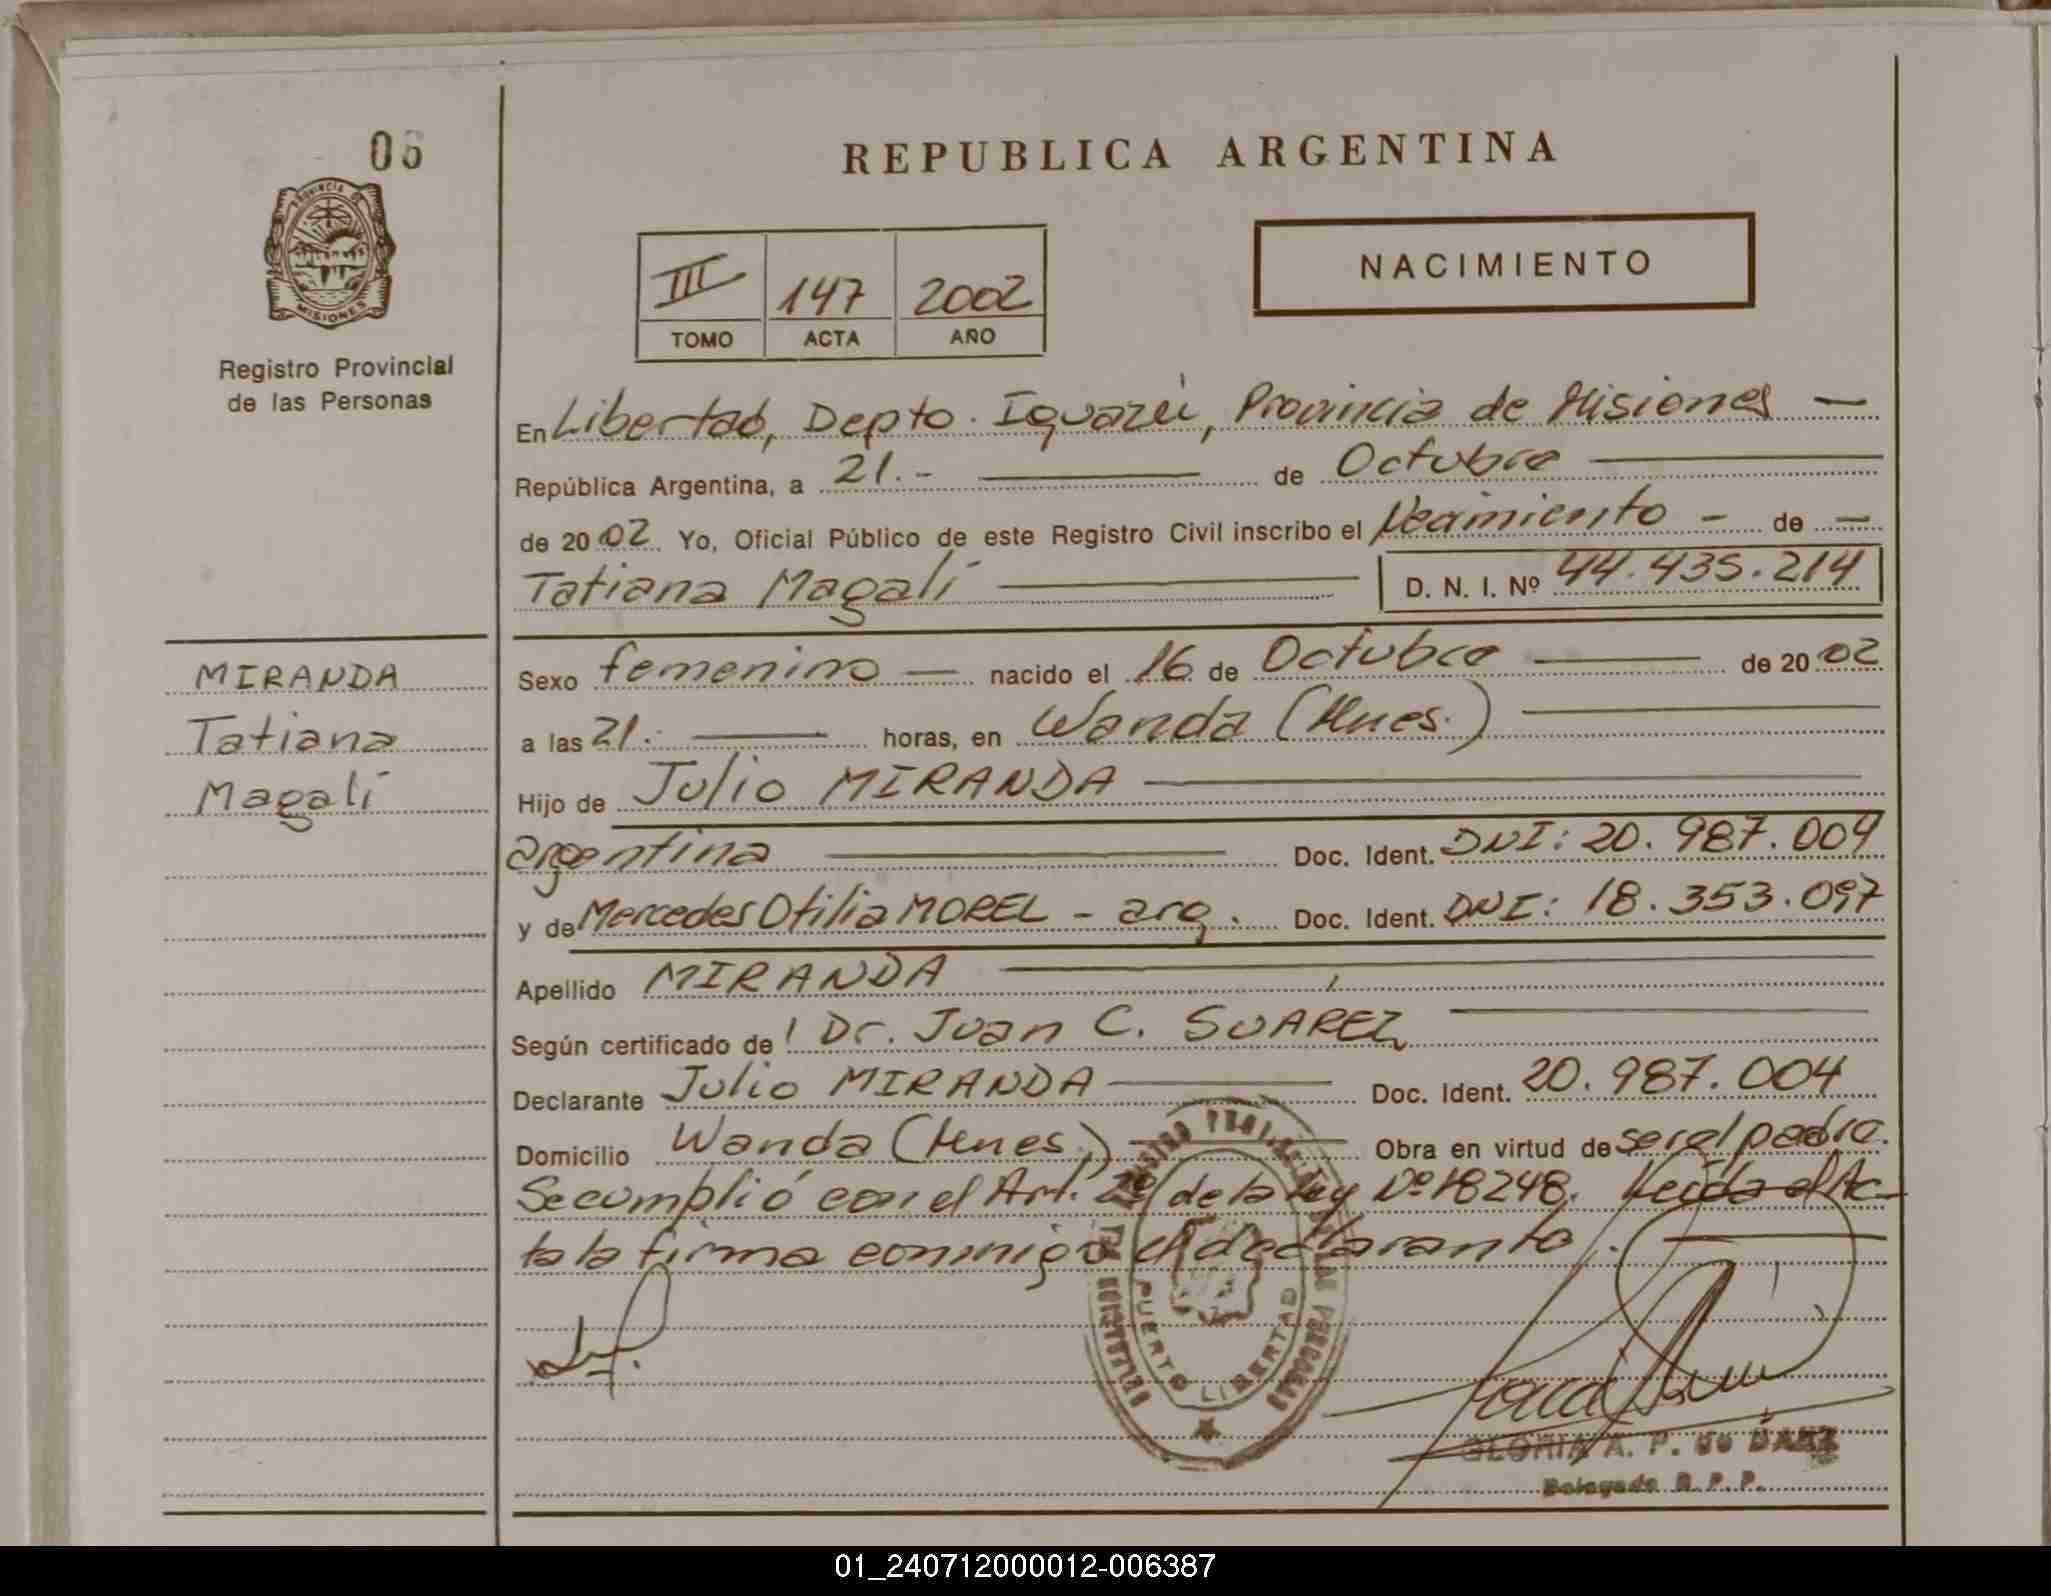 06
REPUBLICA ARGENTINA
PROVINCIA DE
MISIONES
Registro Provincial
de las Personas
III 147 2002
TOMO ACTA AÑO
NACIMIENTO
En Libertad, Depto. Iguazú, Provincia de Misiones —
República Argentina, a 21.- — de Octubre —
de 2002 Yo, Oficial Público de este Registro Civil inscribo el Nacimiento - de —
Tatiana Magalí — D. N. I. Nº 44.435.214
MIRANDA
Tatiana
Magalí
Sexo femenino — nacido el 16 de Octubre — de 2002
a las 21.- — horas, en Wanda (Mnes.) —
Hijo de Julio MIRANDA —
argentina — Doc. Ident. DNI: 20.987.004
y de Mercedes Otilia MOREL - arg. Doc. Ident. DNI: 18.353.097
Apellido MIRANDA —
Según certificado de Dr. Juan C. SUAREZ —
Declarante Julio MIRANDA — Doc. Ident. 20.987.004
Domicilio Wanda (Mnes.) — Obra en virtud de ser el padre.
Se cumplió con el Art. 2º de la ley Nº 18248. Leída el Ac-
ta la firma conmigo el declarante. —
PUERTO LIBERTAD
GLORIA A. P. de
Delegada R. P. P.
01_240712000012-006387